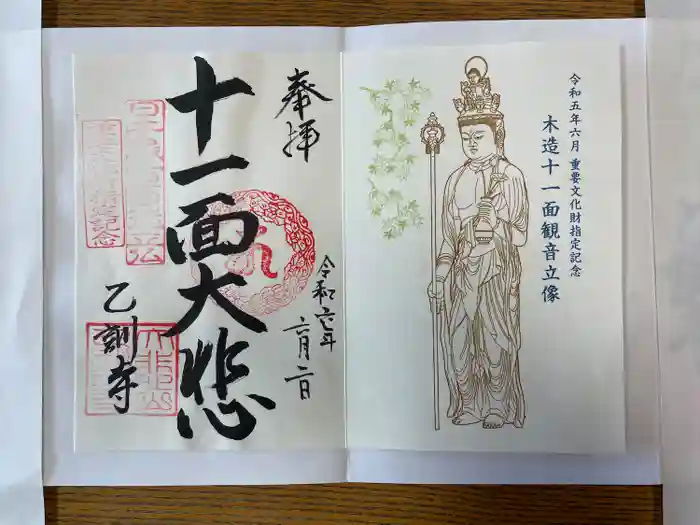 令和五年六月 重要文化財指定記念
木造十一面観音立像
奉拝
十一面大悲
令和六年
六月二日
乙訓寺